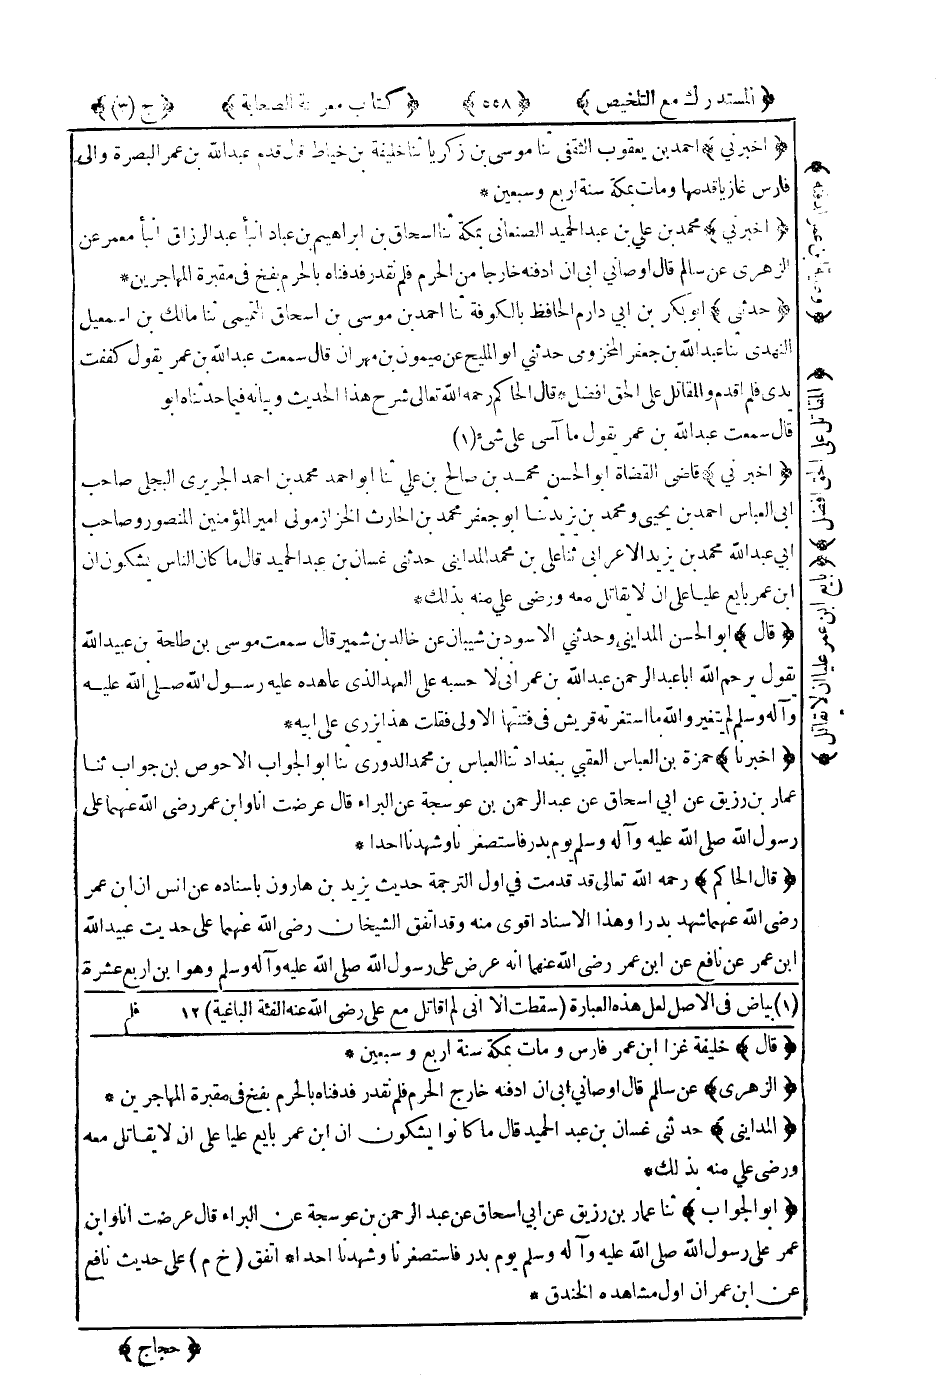 ﴿ المستدرك مع التلخيص ﴾ ﴿ ٥٥٨ ﴾ ﴿ كتاب معرفة الصحابة ﴾ ﴿ ج (٣) ﴾
﴿ اخبرني ﴾ احمد بن يعقوب الثقفى ثنا موسى بن زكريا ثنا خليفة بن خياط قال قدم عبدالله بن عمر البصرة والى
فارس غازيا قدمها ومات بمكة سنة اربع وسبعين *
﴿ اخبرني ﴾ محمد بن علي بن عبدالحميد الصنعانى بمكة ثنا اسحاق بن ابراهيم بن عباد انبأ عبدالرزاق انبأ معمر عن
الزهرى عن سالم قال اوصانى ابى ان ادفنه خارجا من الحرم فلم نقدر فدفناه بالحرم بفخ فى مقبرة المهاجرين *
﴿ حدثنى ﴾ ابو بكر بن ابي دارم الحافظ بالكوفة ثنا احمد بن موسى بن اسحاق التميمى ثنا مالك بن اسمعيل
النهدى ثنا عبدالله بن جعفر المخزومى حدثني ابو المليح عن ميمون بن مهران قال سمعت عبدالله بن عمر يقول كففت
يدى فلم اقدم والمقاتل على الحق افضل * قال الحاكم رحمه الله تعالى شرح هذا الحديث وبيانه فيما حدثناه ابو
قال سمعت عبدالله بن عمر يقول ما آسى على شئ (١)
﴿ اخبرني ﴾ قاضى القضاة ابو الحسن محمد بن صالح بن علي ثنا ابو احمد محمد بن احمد الجريرى البجلى صاحب
ابى العباس احمد بن يحيى ومحمد بن يزيد ثنا ابو جعفر محمد بن الحارث الخزاز مولى امير المؤمنين المنصور وصاحب
ابي عبدالله محمد بن يزيد الاعرابى ثنا على بن محمد المداينى حدثنى غسان بن عبدالحميد قال ما كان الناس يشكون ان
ابن عمر بايع عليا على ان لا يقاتل معه ورضى علي منه بذلك *
﴿ قال ﴾ ابو الحسن المدايني وحدثني الاسود بن شيبان عن خالد بن شمير قال سمعت موسى بن طلحة بن عبيدالله
يقول يرحم الله ابا عبدالرحمن عبدالله بن عمر انى لا حسبه على العهد الذى عاهده عليه رسول الله صلى الله عليه
وآله وسلم لم يتغير والله ما استفزته قريش فى فتنتها الاولى فقلت هذا يزرى على ابيه *
﴿ اخبرنا ﴾ حمزة بن العباس العقبي ببغداد ثنا العباس بن محمد الدورى ثنا ابو الجواب الاحوص بن جواب ثنا
عمار بن رزيق عن ابي اسحاق عن عبدالرحمن بن عوسجة عن البراء قال عرضت انا وابن عمر رضى الله عنهما على
رسول الله صلى الله عليه وآله وسلم يوم بدر فاستصغرنا وشهدنا احدا *
﴿ قال الحاكم ﴾ رحمه الله تعالى قد قدمت في اول الترجمة حديث يزيد بن هارون باسناده عن انس ان ابن عمر
رضى الله عنهما شهد بدرا وهذا الاسناد اقوى منه وقد اتفق الشيخان رضى الله عنهما على حديث عبيدالله
ابن عمر عن نافع عن ابن عمر رضى الله عنهما انه عرض على رسول الله صلى الله عليه وآله وسلم وهو ابن اربع عشرة
(١) بياض فى الاصل لعل هذه العبارة (سقطت الا انى لم اقاتل مع على رضى الله عنه الفئة الباغية) ١٢
فلم
﴿ قال ﴾ خليفة غزا ابن عمر فارس ومات بمكة سنة اربع وسبعين *
﴿ الزهرى ﴾ عن سالم قال اوصانى ابى ان ادفنه خارج الحرم فلم نقدر فدفناه بالحرم بفخ فى مقبرة المهاجرين *
﴿ المداينى ﴾ حدثنى غسان بن عبد الحميد قال ما كانوا يشكون ان ابن عمر بايع عليا على ان لا يقاتل معه
ورضى علي منه بذلك *
﴿ ابو الجواب ﴾ ثنا عمار بن رزيق عن ابي اسحاق عن عبد الرحمن بن عوسجة عن البراء قال عرضت انا وابن
عمر على رسول الله صلى الله عليه وآله وسلم يوم بدر فاستصغرنا وشهدنا احدا * اتفق (خ م) على حديث نافع
عن ابن عمر ان اول مشاهده الخندق *
﴿ حجاج ﴾
﴿ وصية ابن عمر لدفنه ﴾
﴿ المقاتل على الحق افضل ﴾
﴿ بايع ابن عمر عليا ان لا يقاتل ﴾